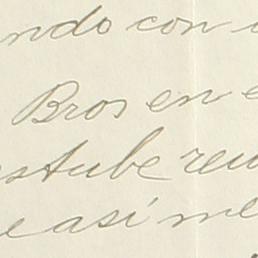 ndo con
Bros en e
stube reu
e así me